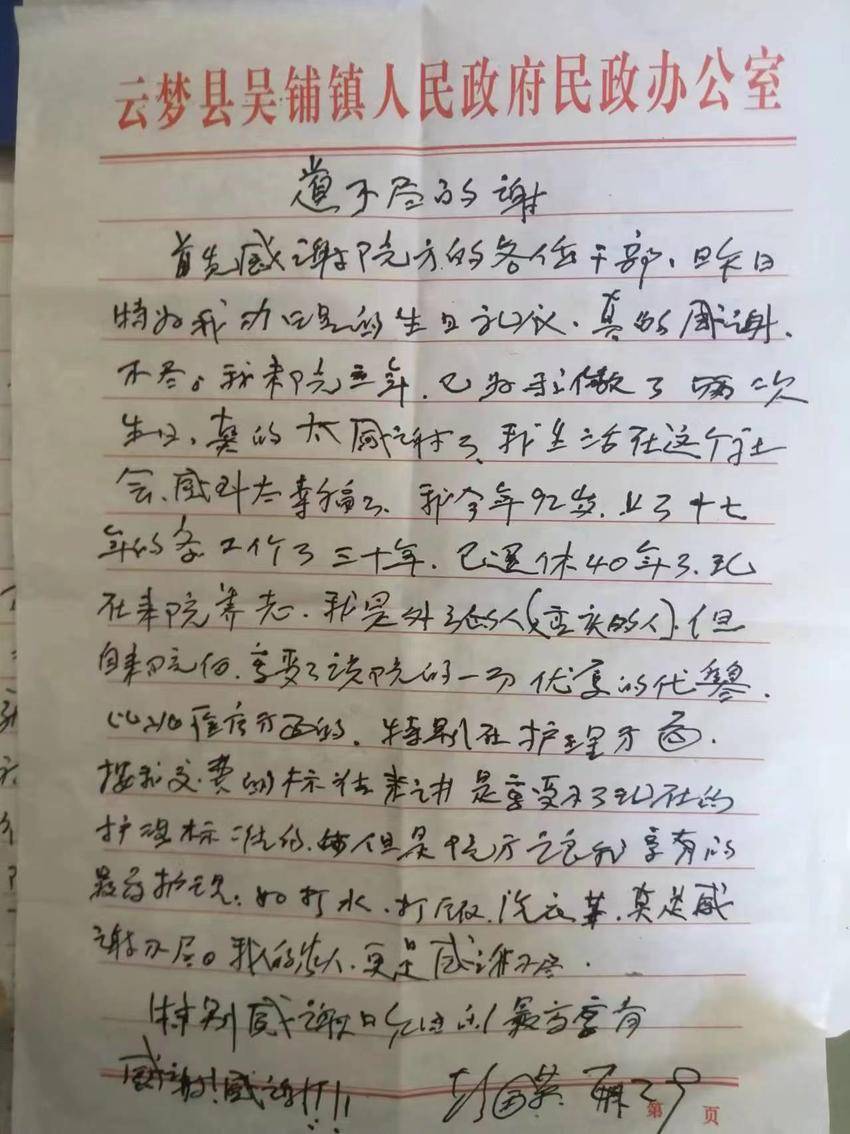 云梦县吴铺镇人民政府民政办公室
道不尽的谢
首先感谢院方的各位干部、昨日
特为我办的生日礼仪、真的感谢
不尽。我来院三年、已为我做了两次
生日、真的太感谢了、我生活在这个社
会、感到太幸福了、我今年92岁、了十七
年的工作了三十年、已退休40年了、现
在来院养老、我是外的人(重庆的人)、但
自来院、享受了该院的一切优厚的代、
医疗方面的、特别在护理方面、
按我交费的标准来讲是享受不了现在的
护理标准的、但是院方让我享有的
最高护理、如打水、打饭、洗衣等、真是感
谢不尽。我的家人、更是感谢不尽、
特别感谢最高享有
感谢!感谢!!!!
国英
第 页